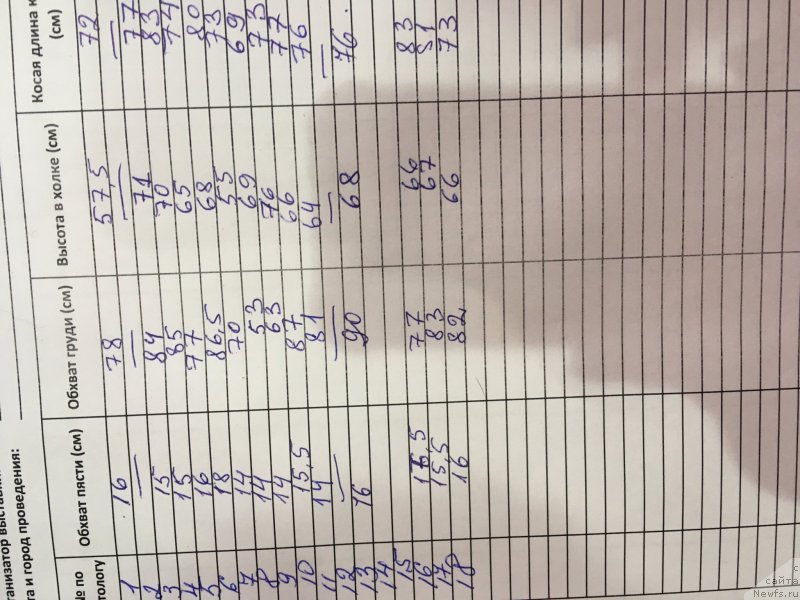 ганизатор выставки:
та и город проведения:
№ по
тологу Обхват пясти (см) Обхват груди (см) Высота в холке (см) Косая длина
(см)
1 16 78 57,5 72
2 — — — —
3 15 84 71 77
4 15 85 70 83
5 16 77 65 74
6 18 86,5 68 80
7 14 70 55 73
8 14 53 69 69
9 14 63 76 73
10 15,5 87 66 77
11 14 81 64 76
12 — — — —
13 16 90 68 76.
14
15
16 16,5 77 66 83
17 15,5 83 67 81
18 16 82 66 73
с сайта
Newfs.ru